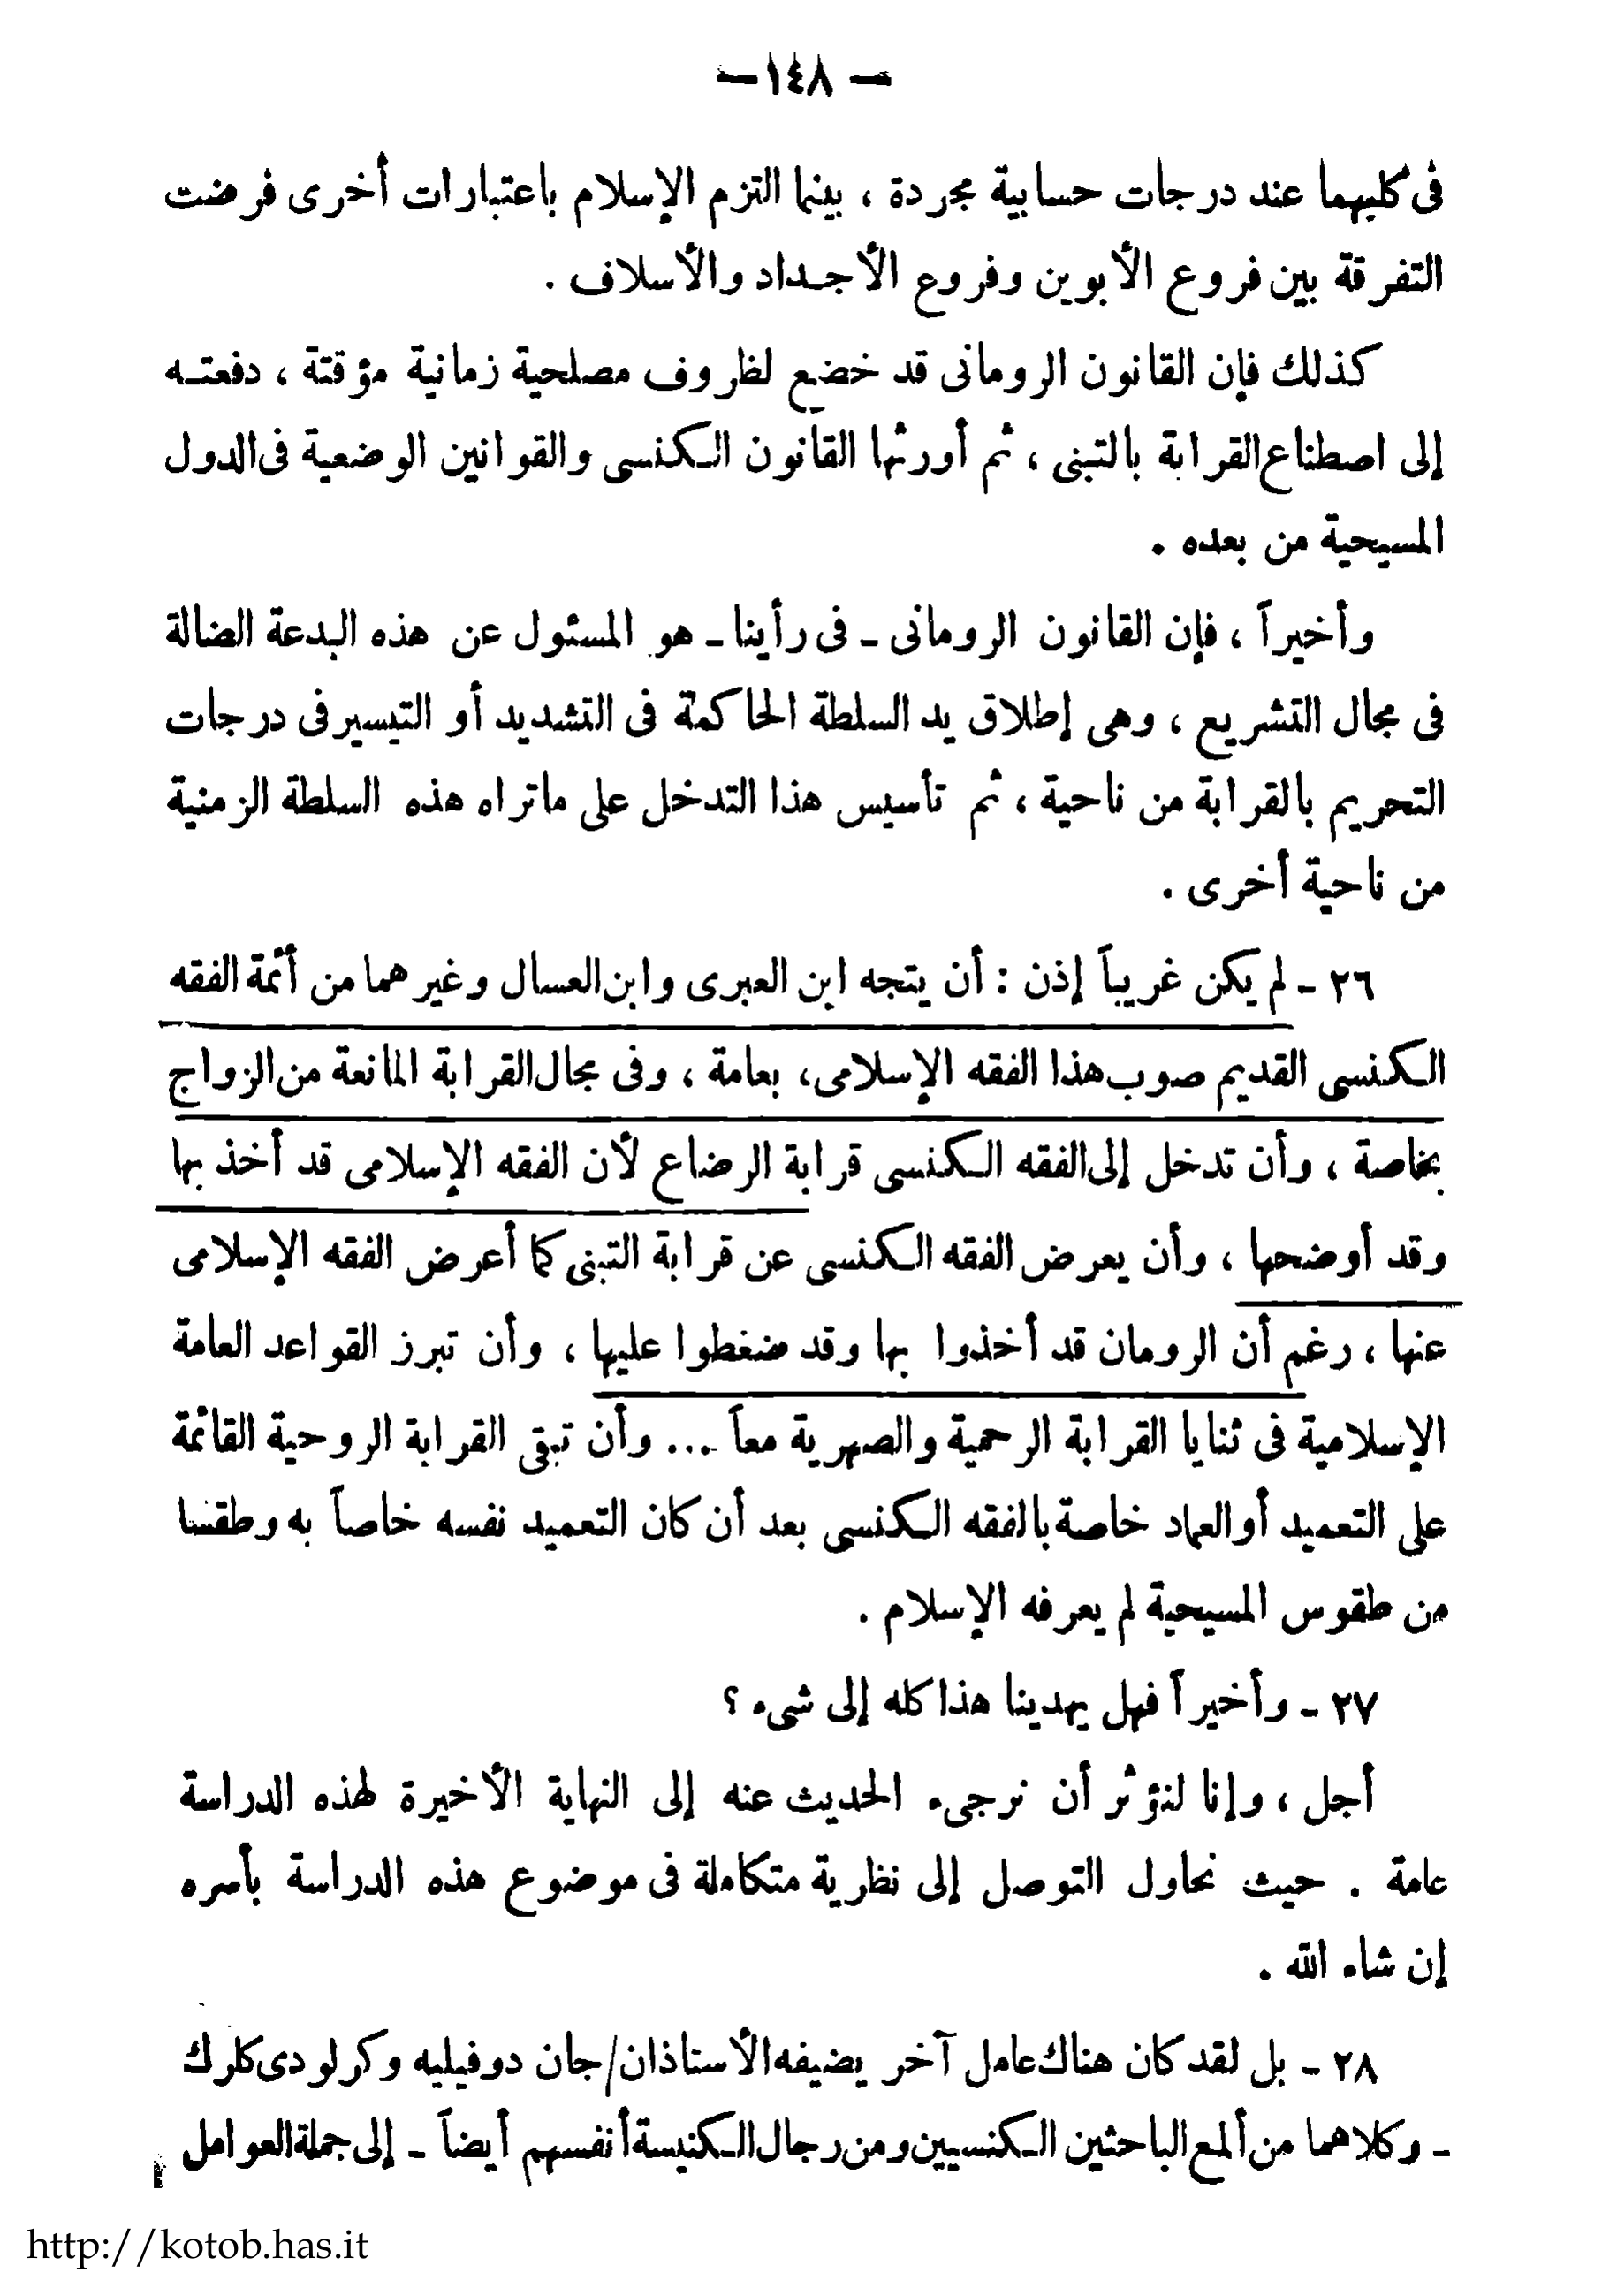 — ١٤٨ —
فى كليهما عند درجات حسابية مجردة ، بينما التزم الإسلام باعتبارات أخرى فرضت
التفرقة بين فروع الأبوين وفروع الأجداد والأسلاف .
كذلك فإن القانون الرومانى قد خضع لظروف مصلحية زمانية مؤقتة ، دفعته
إلى اصطناع القرابة بالتبنى ، ثم أورثها القانون الكنسى والقوانين الوضعية فى الدول
المسيحية من بعده .
وأخيراً ، فإن القانون الرومانى ـ فى رأينا ـ هو المسئول عن هذه البدعة الضالة
فى مجال التشريع ، وهى إطلاق يد السلطة الحاكمة فى التشديد أو التيسير فى درجات
التحريم بالقرابة من ناحية ، ثم تأسيس هذا التدخل على ماتراه هذه السلطة الزمنية
من ناحية أخرى .
٢٦ ـ لم يكن غريباً إذن : أن يتجه ابن العبرى وابن العسال وغيرهما من أئمة الفقه
الكنسى القديم صوب هذا الفقه الإسلامى، بعامة ، وفى مجال القرابة المانعة من الزواج
بخاصة ، وأن تدخل إلى الفقه الكنسى قرابة الرضاع لأن الفقه الإسلامى قد أخذ بها
وقد أوضحها ، وأن يعرض الفقه الكنسى عن قرابة التبنى كما أعرض الفقه الإسلامى
عنها ، رغم أن الرومان قد أخذوا بها وقد ضغطوا عليها ، وأن تبرز القواعد العامة
الإسلامية فى ثنايا القرابة الرحمية والصهرية معاً ... وأن تبقى القرابة الروحية القائمة
على التعميد أو العماد خاصة بالفقه الكنسى بعد أن كان التعميد نفسه خاصاً به وطقسا
من طقوس المسيحية لم يعرفه الإسلام .
٢٧ ـ وأخيراً فهل يهدينا هذا كله إلى شىء ؟
أجل ، وإنا لنؤثر أن نرجىء الحديث عنه إلى النهاية الأخيرة لهذه الدراسة
عامة . حيث نحاول التوصل إلى نظرية متكاملة فى موضوع هذه الدراسة بأسره
إن شاء الله .
٢٨ ـ بل لقد كان هناك عامل آخر يضيفه الأستاذان/جان دوفيليه وكرلو دى كلرك
ـ وكلاهما من ألمع الباحثين الكنسيين ومن رجال الكنيسة أنفسهم أيضاً ـ إلى جملة العوامل
http://kotob.has.it